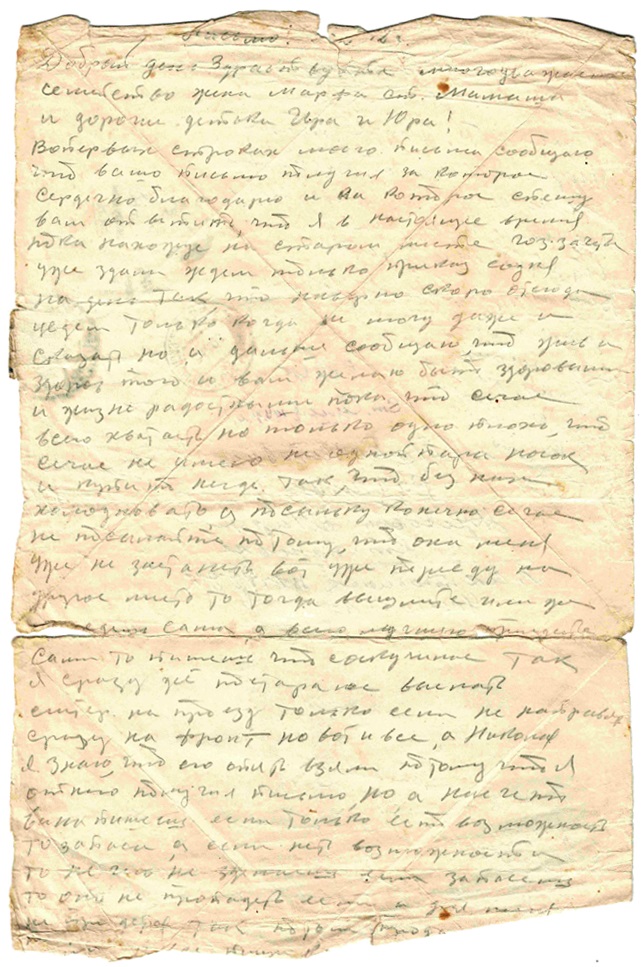 Письмо!
Добрый день Здравствуйте многоуважаемое
семейство жена Марфа ст. Мамаша
и дорогие детоки Гера и Юра!
Вопервых строках моего письма сообщаю
что ваше письмо получил за которое
сердечно благодарю и на которое спешу
вам ответить, что я в настоящее время
пока нахожусь на старом месте гос. зачеты
уже здали ждем только приказ
на день так что наверно скоро отсюда
уедем только когда не могу даже и
сказать но и дальше сообщаю, что жив и
здоров того и вам желаю быть здоровыми
и жизне радостными пока что сечас
всего хватает но только одно плохо, что
сечас не имею не одной пары носок
и купить негде, так, что без них
а посылку конечно сечас
не посылайте потому, что она меня
уже не застанеть вот уже перееду на
другое место то тогда вышлите или же
сами, а
сами то пишете что соскучилас так
я сразу же постараюс выслать
на проезд только если не направят
сразу на фронт но вот и все, а Николая
я знаю что его опять взяли потому что я
от него получил письмо, но а насчет
вина пишеш если только есть возможность
то запаси, а если нет возможности
то не запасеш
то оно не пропадеть если а для меня
не так